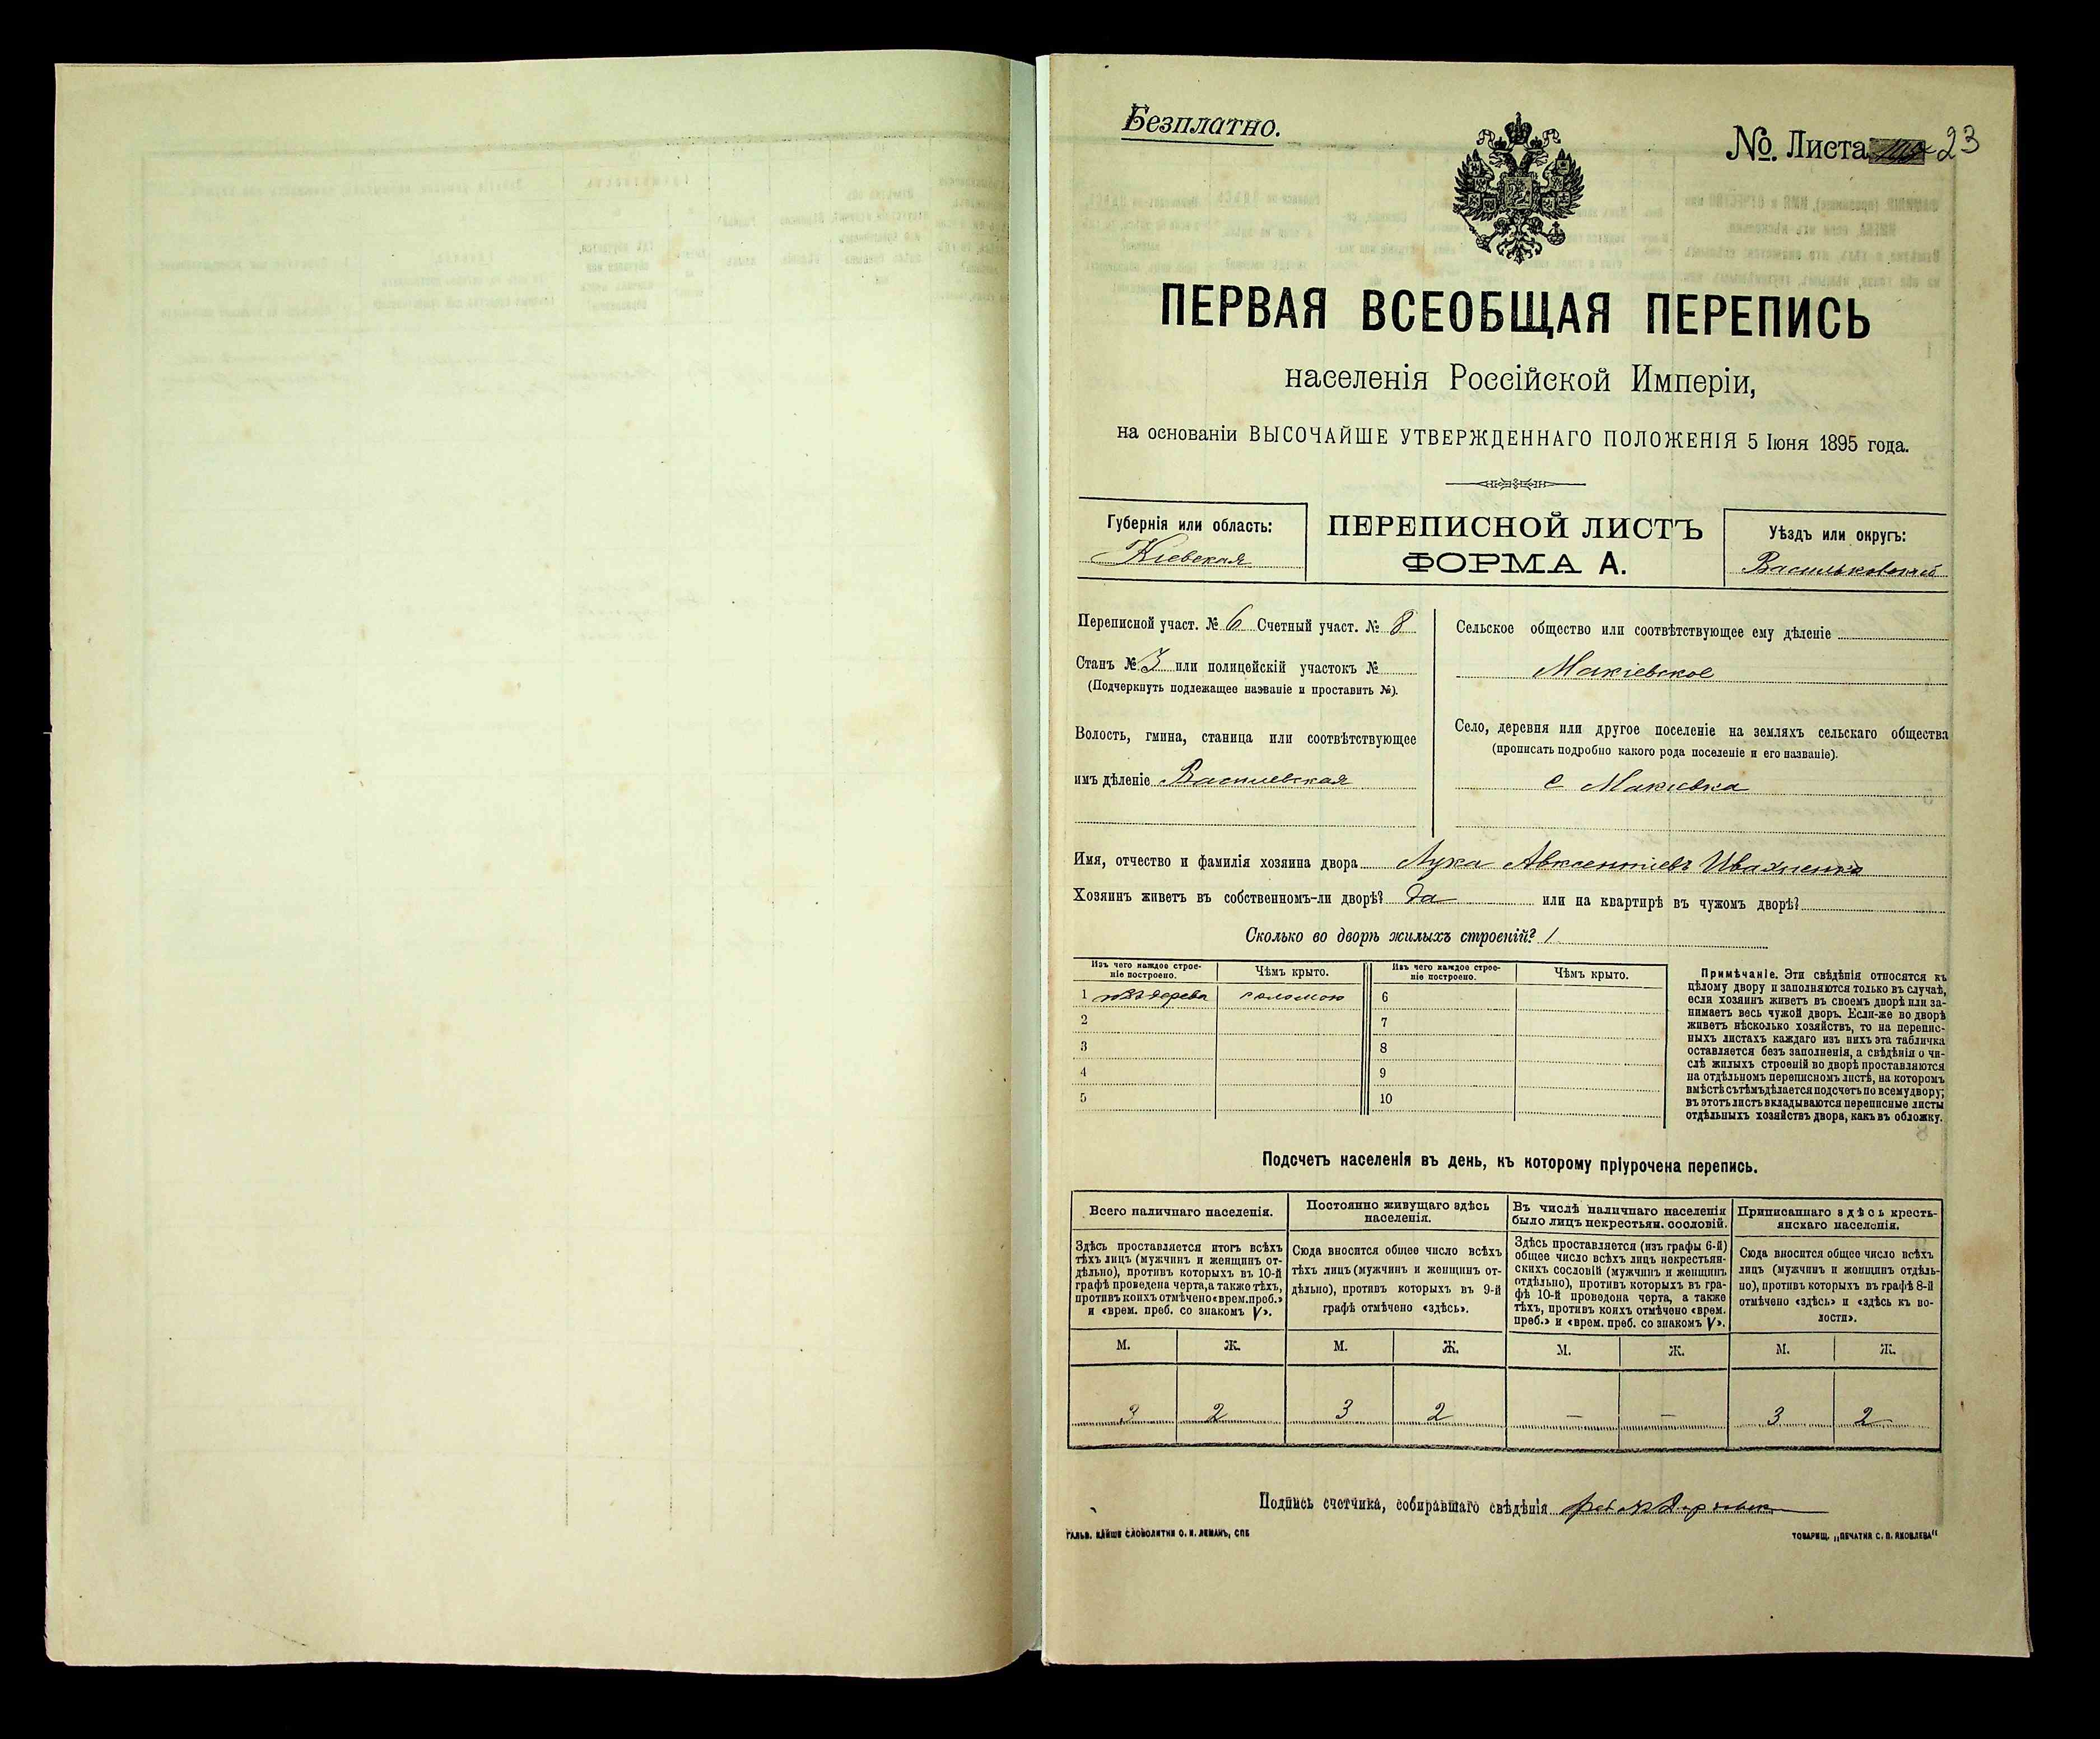 Безплатно.
№. Листа 23
ПЕРВАЯ ВСЕОБЩАЯ ПЕРЕПИСЬ
населенія Россійской Имперіи,
на основаніи ВЫСОЧАЙШЕ УТВЕРЖДЕННАГО ПОЛОЖЕНІЯ 5 Іюня 1895 года.
Губернія или область:
Кіевская
ПЕРЕПИСНОЙ ЛИСТЪ
ФОРМА А.
Уѣздъ или округъ:
Васильковскій
Переписной участ. № 6 Счетный участ. № 8
Станъ № 3 или полицейскій участокъ №
(Подчеркнуть подлежащее названіе и проставить №).
Волость, гмина, станица или соотвѣтствующее
имъ дѣленіе
Сельское общество или соотвѣтствующее ему дѣленіе
Макіевское
Село, деревня или другое поселеніе на земляхъ сельскаго общества
(прописать подробно какого рода поселеніе и его названіе).
с Макіевка
Имя, отчество и фамилія хозяина двора Лука Авксентіевъ Ивахненко
Хозяинъ живетъ въ собственномъ-ли дворѣ? Да или на квартирѣ въ чужомъ дворѣ?
Сколько во дворѣ жилыхъ строеній? 1
Изъ чего каждое строе-
ніе построено.
Чѣмъ крыто.
Изъ чего каждое строе-
ніе построено.
Чѣмъ крыто.
1 изъ дерева соломою 6
2 7
3 8
4 9
5 10
Примѣчаніе. Эти свѣдѣнія относятся къ
цѣлому двору и заполняются только въ случаѣ,
если хозяинъ живетъ въ своемъ дворѣ или за-
нимаетъ весь чужой дворъ. Если-же во дворѣ
живетъ нѣсколько хозяйствъ, то на перепис-
ныхъ листахъ каждаго изъ нихъ эта табличка
оставляется безъ заполненія, а свѣдѣнія о чи-
слѣ жилыхъ строеній во дворѣ проставляются
на отдѣльномъ переписномъ листѣ, на которомъ
вмѣстѣ съ тѣмъ дѣлается подсчетъ по всему двору;
въ этотъ листъ вкладываются переписные листы
отдѣльныхъ хозяйствъ двора, какъ въ обложку.
Подсчетъ населенія въ день, къ которому пріурочена перепись.
Всего наличнаго населенія.
Здѣсь проставляется итогъ всѣхъ
тѣхъ лицъ (мужчинъ и женщинъ от-
дѣльно), противъ которыхъ въ 10-й
графѣ проведена черта, а также тѣхъ,
противъ коихъ отмѣчено «врем. преб.»
и «врем. преб. со знакомъ V».
Постоянно живущаго здѣсь
населенія.
Сюда вносится общее число всѣхъ
тѣхъ лицъ (мужчинъ и женщинъ от-
дѣльно), противъ которыхъ въ 9-й
графѣ отмѣчено «здѣсь».
Въ числѣ наличнаго населенія
было лицъ некрестьян. сословій.
Здѣсь проставляется (изъ графы 6-й)
общее число всѣхъ лицъ некрестьян-
скихъ сословій (мужчинъ и женщинъ
отдѣльно), противъ которыхъ въ гра-
фѣ 10-й проведена черта, а также
тѣхъ, противъ коихъ отмѣчено «врем.
преб.» и «врем. преб. со знакомъ V».
Приписаннаго здѣсь кресть-
янскаго населенія.
Сюда вносится общее число всѣхъ
лицъ (мужчинъ и женщинъ отдѣль-
но), противъ которыхъ въ графѣ 8-й
отмѣчено «здѣсь» и «здѣсь къ во-
лости».
М. Ж. М. Ж. М. Ж. М. Ж.
3 2 3 2 — — 3 2
Подпись счетчика, собиравшаго свѣдѣнія
ГАЛЬВ. КЛИШЕ СЛОВОЛИТНИ О. И. ЛЕМАНЪ, СПБ
ТОВАРИЩ. „ПЕЧАТНЯ С. П. ЯКОВЛЕВА“